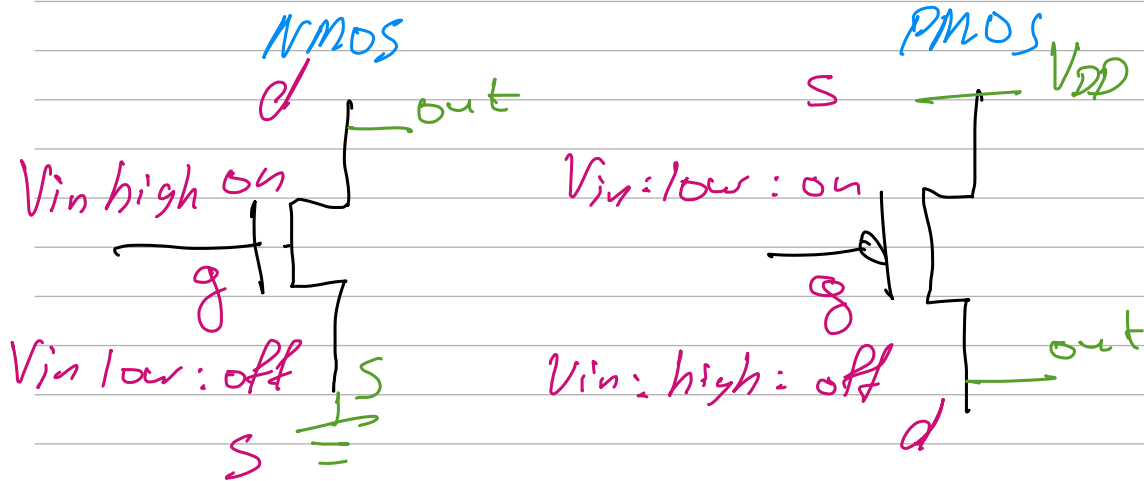 NMOS
d
out
Vin high on
g
Vin low: off
S
S
PMOS
S
VDD
Vin: low: on
g
Vin: high: off
out
d